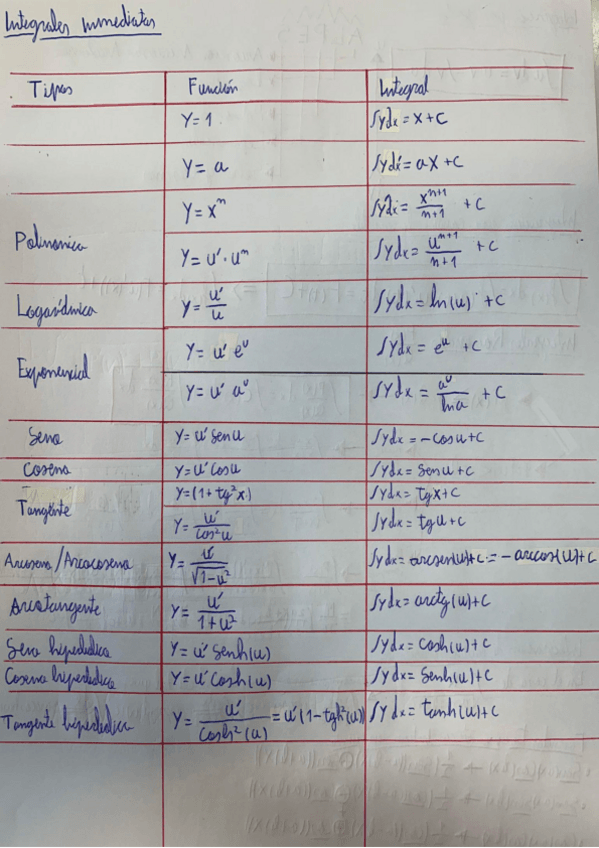 Integrales inmediatas
Tipos Función Integral
Y= 1 ∫ydx = x+C
Y= a ∫ydx = ax +C
Y= xⁿ ∫ydx = xⁿ⁺¹/n+1 +C
Polinómica
Y= u'·uⁿ ∫ydx = uⁿ⁺¹/n+1 +C
Logarídmica Y= u'/u ∫ydx = ln(u) +C
Exponencial
Y= u' eᵘ ∫ydx = eᵘ +C
Y= u' aᵘ ∫ydx = aᵘ/lna +C
Seno Y= u' senu ∫ydx = -cosu+C
Coseno Y= u' cosu ∫ydx = senu+C
Tangente
Y=(1+tg²x) ∫ydx = tgx+C
Y= u'/cos²u ∫ydx = tgu+C
Arcoseno/Arcocoseno Y= u'/√1-u² ∫ydx = arcsen(u)+C = -arccos(u)+C
Arcotangente Y= u'/1+u² ∫ydx = arctg(u)+C
Seno hiperbólico Y= u' senh(u) ∫ydx = cosh(u)+C
Coseno hiperbólico Y= u' cosh(u) ∫ydx = senh(u)+C
Tangente hiperbólica Y= u'/cosh²(u) = u'(1-tgh²(u)) ∫ydx = tanh(u)+C